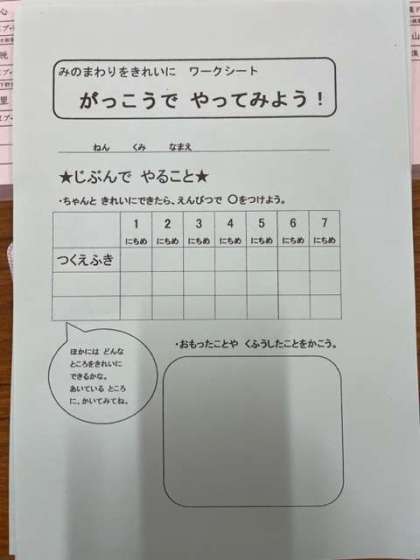 みのまわりをきれいに　ワークシート
がっこうで やってみよう！
ねん　くみ　なまえ
★じぶんで やること★
・ちゃんと きれいにできたら、えんぴつで 〇をつけよう。
1 2 3 4 5 6 7
にちめ にちめ にちめ にちめ にちめ にちめ にちめ
つくえふき
ほかには どんな
ところをきれいに
できるかな。
あいている ところ
に、かいてみてね。
・おもったことや くふうしたことをかこう。